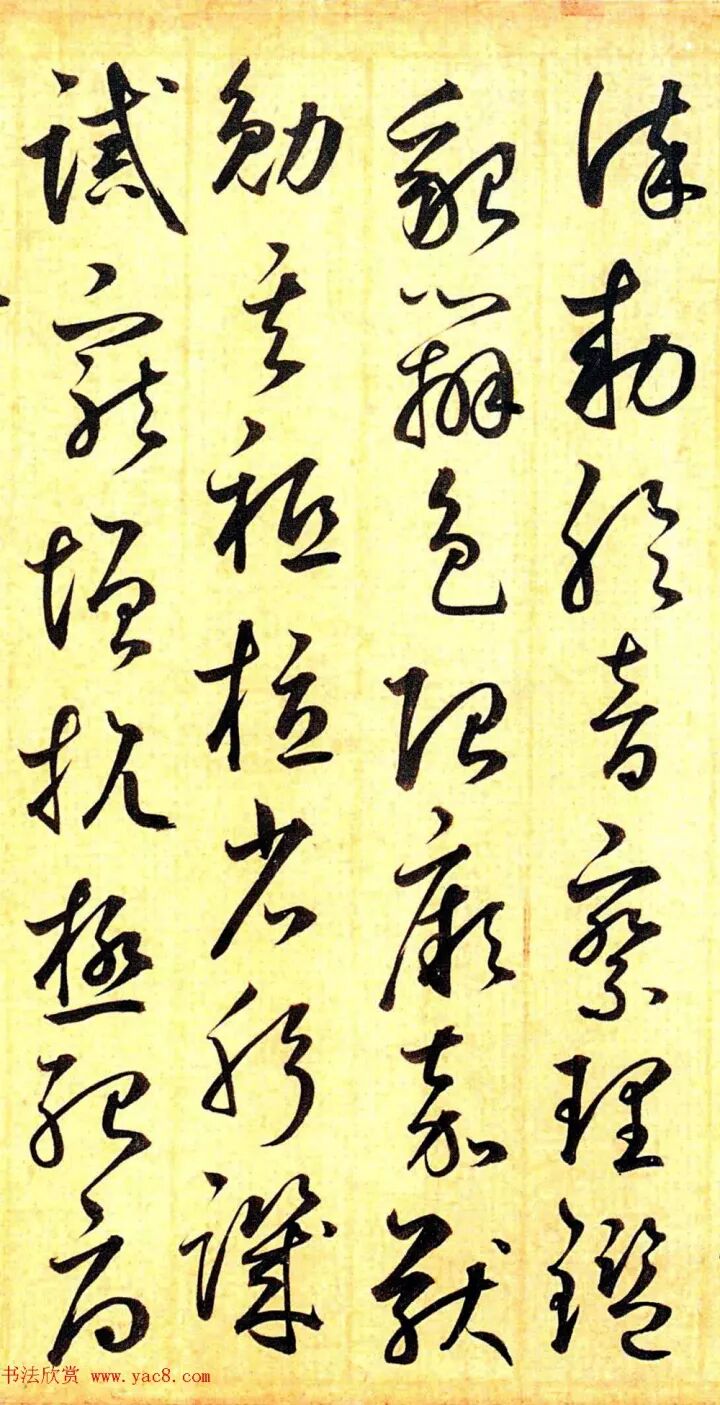 謹敕聆音察理鑑
貌辨色貽厥嘉猷
勉其祗植省躬譏
誡寵增抗極殆辱
书法欣赏 www.yac8.com